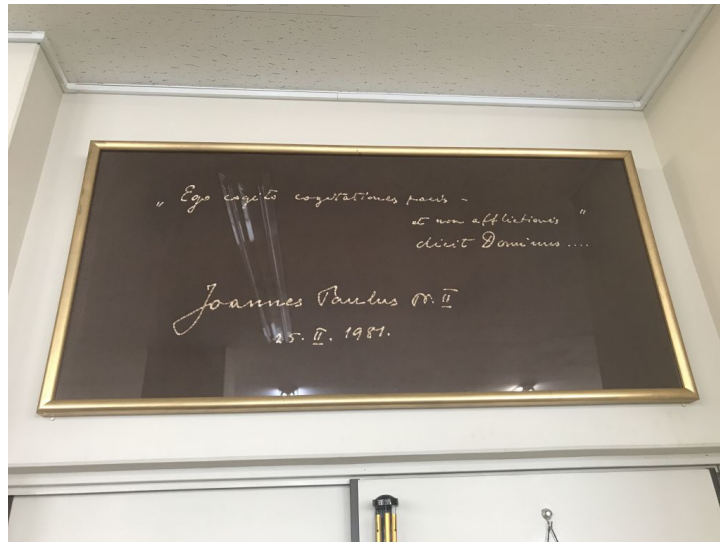 „ Ego cogito cogitationes pacis -
et non afflictionis "
dicit Dominus ....
Joannes Paulus PP. II
25. II. 1981.